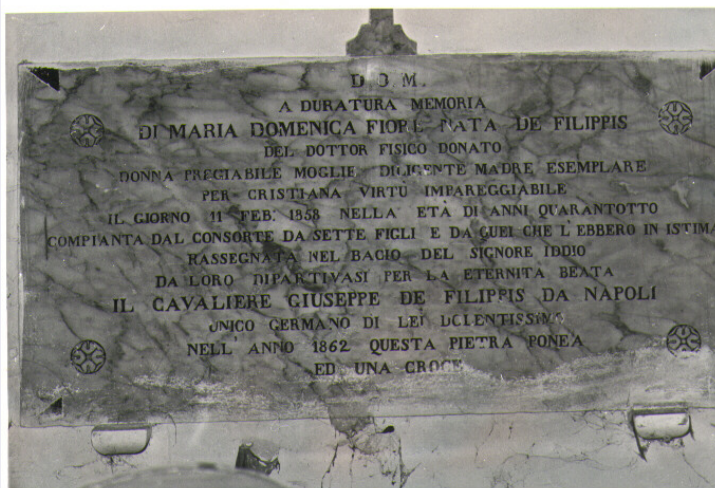 D. O. M.
A DURATURA MEMORIA
DI MARIA DOMENICA FIORE NATA DE FILIPPIS
DEL DOTTOR FISICO DONATO
DONNA PREGIABILE MOGLIE DILIGENTE MADRE ESEMPLARE
PER CRISTIANA VIRTÙ IMPAREGGIABILE
IL GIORNO 11 FEB: 1858 NELLA ETÀ DI ANNI QUARANTOTTO
COMPIANTA DAL CONSORTE DA SETTE FIGLI E DA QUEI CHE L'EBBERO IN ISTIMA
RASSEGNATA NEL BACIO DEL SIGNORE IDDIO
DA LORO DIPARTIVASI PER LA ETERNITÀ BEATA
IL CAVALIERE GIUSEPPE DE FILIPPIS DA NAPOLI
UNICO GERMANO DI LEI DOLENTISSIMO
NELL'ANNO 1862 QUESTA PIETRA PONEA
ED UNA CROCE